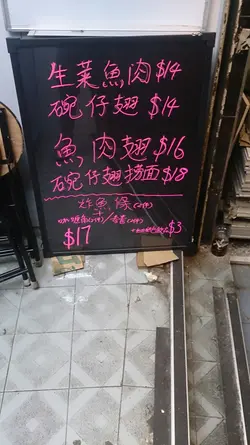 生菜魚肉 $14
碗仔翅 $14
魚肉翅 $16
碗仔翅撈麵 $18
炸魚條
$17
$3